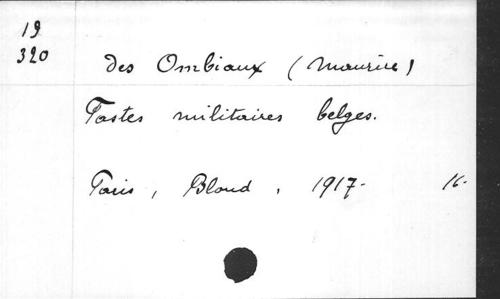 19
320
des Ombiaux (Maurice)
Fastes militaires belges.
Paris, Bloud, 1917- 16-